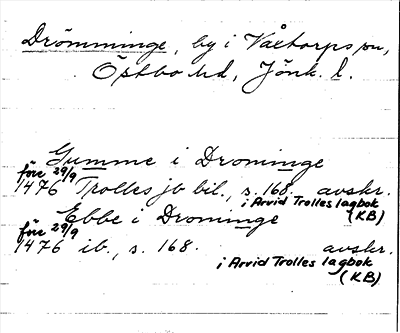 Drömminge, by i Våthorps sn,
Östbo hd, Jönk. l.
Gumme i Drominge
före 29/9
1476 Trolles jb bil., s. 168. avskr.
i Arvid Trolles lagbok
(KB)
Ebbe i Drominge
före 29/9
1476 ib., s. 168. avskr.
i Arvid Trolles lagbok
(KB)